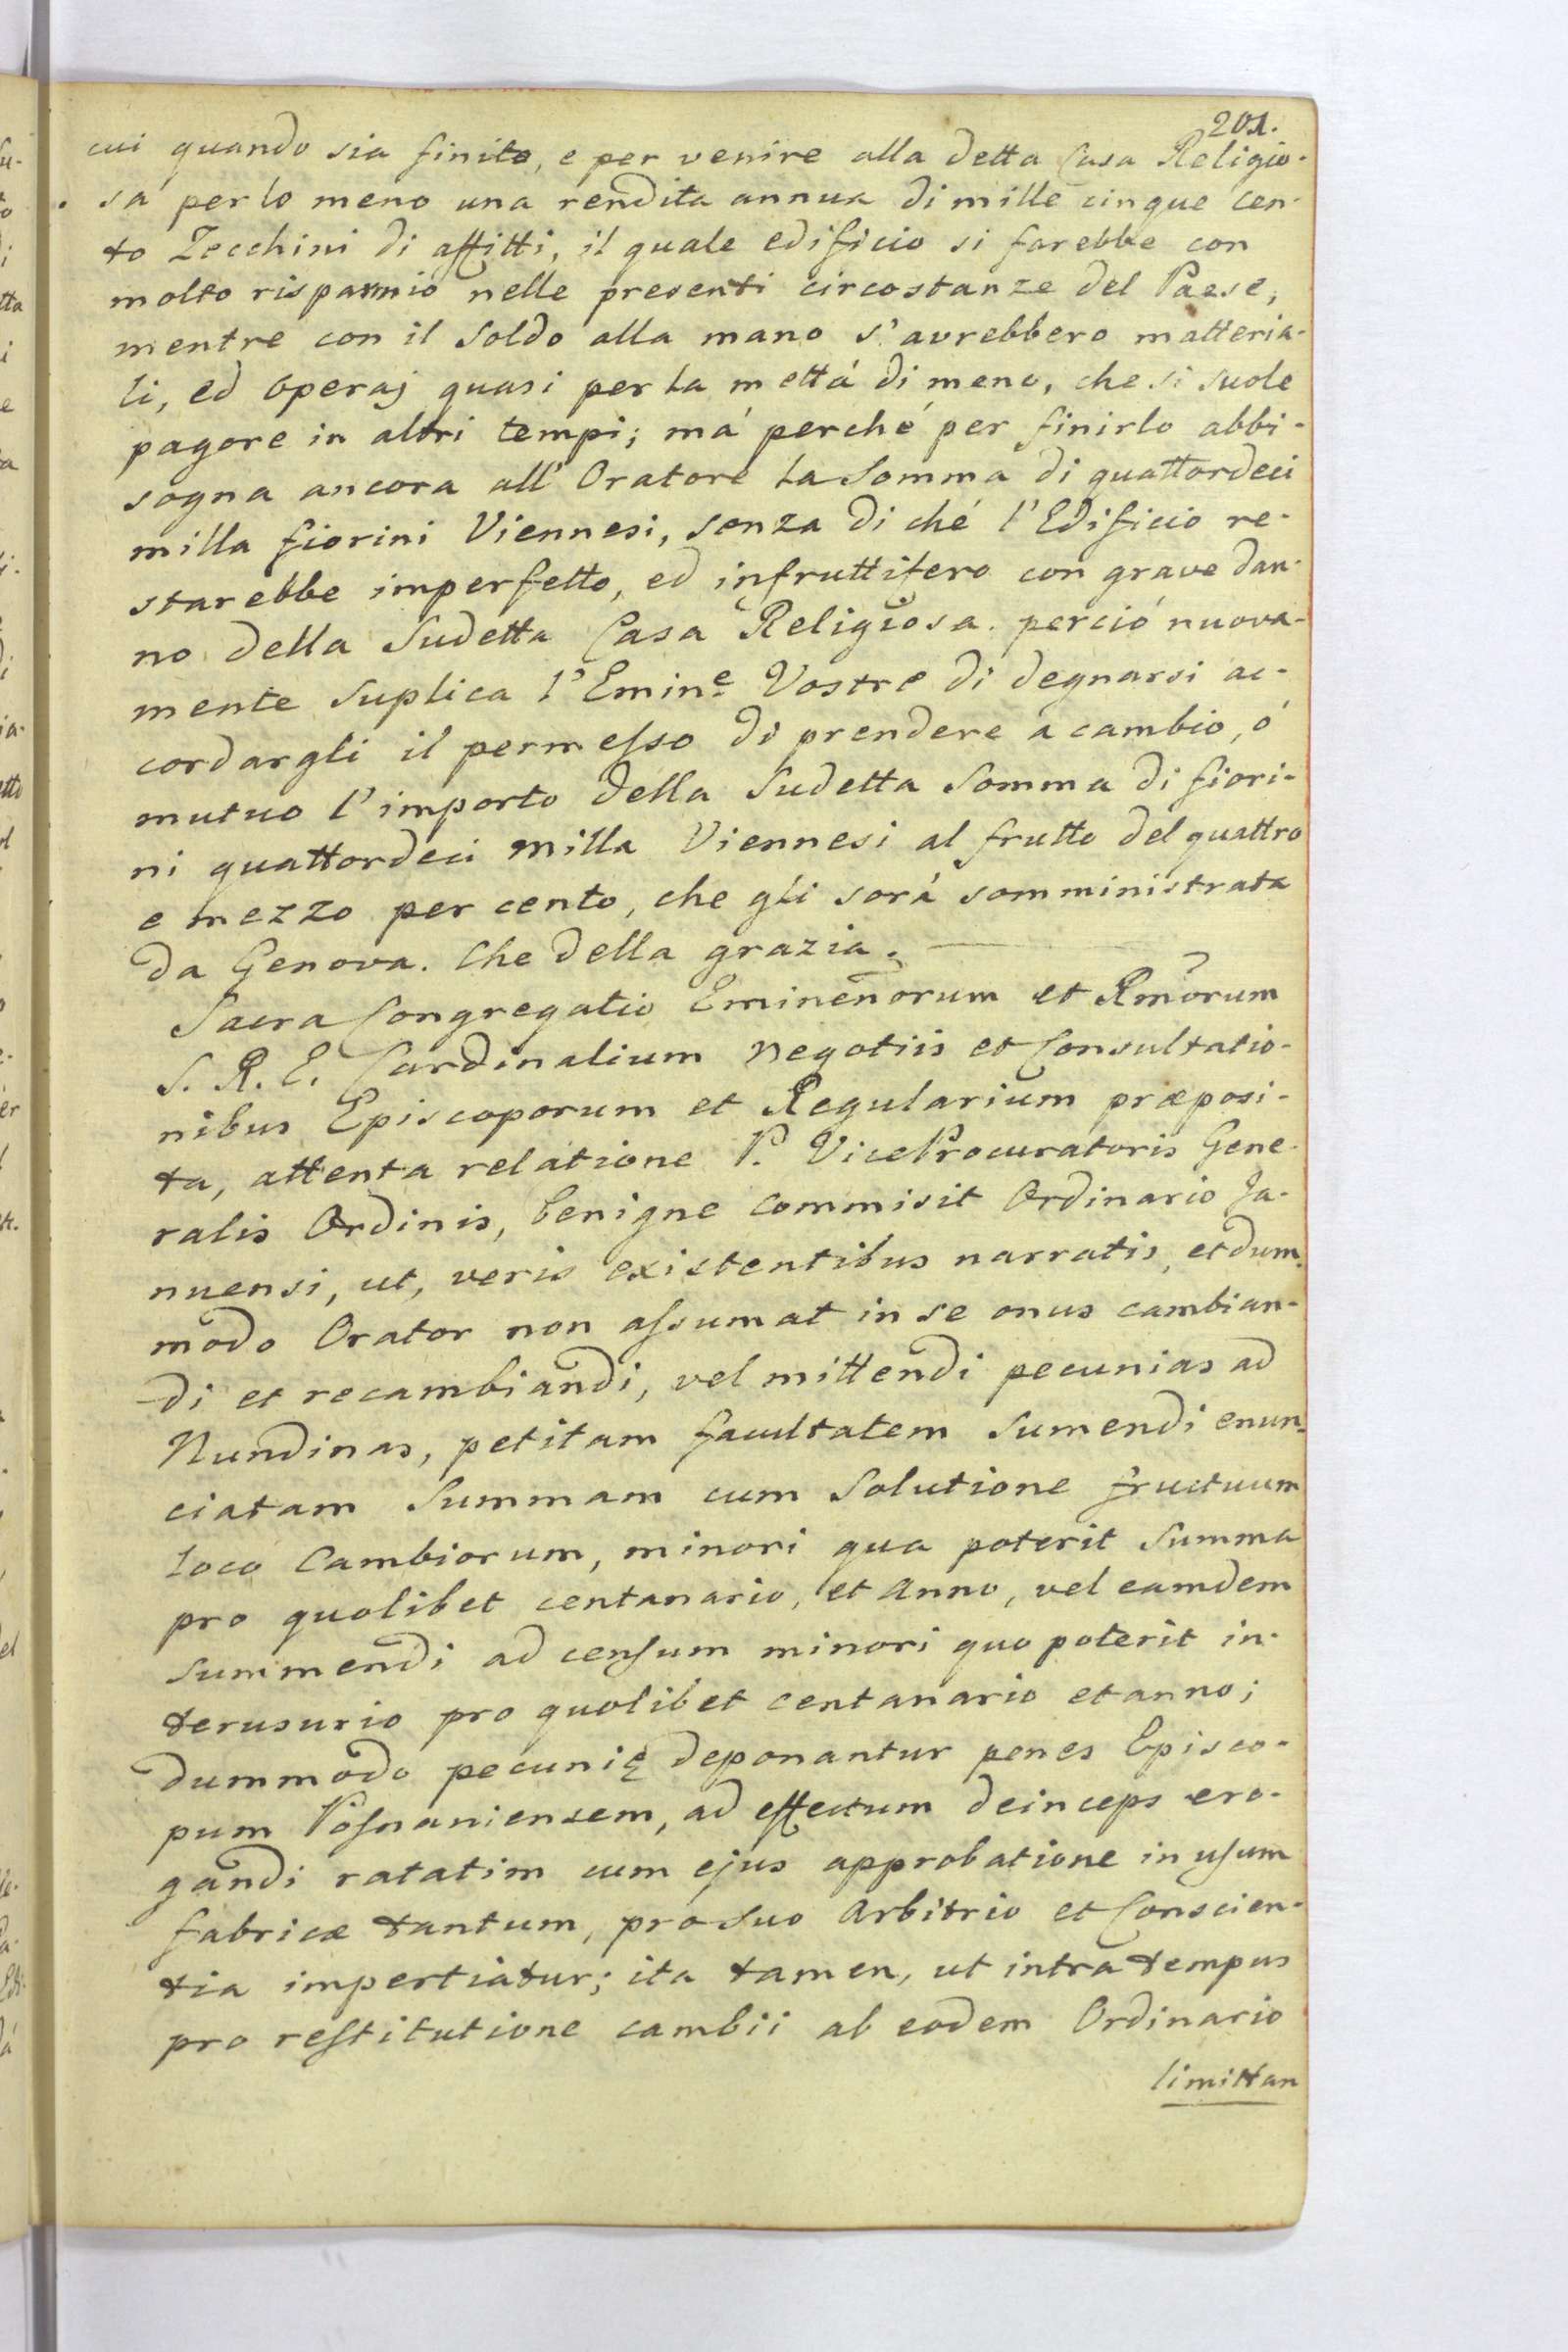 201.
cui quando sia finito, e per venire alla detta Casa Religio-
sa per lo meno una rendita annua di mille cinque cen-
to Zecchini di affitti, il quale edificio si farebbe con
molto risparmio nelle presenti circostanze del Paese,
mentre con il soldo alla mano s'avrebbero matteria-
li, ed Operaj quasi per la mettá di meno, che si suole
pagare in altri tempi; má perché per finirlo abbi-
sogna ancora all' Oratore la Somma di quattordeci
milla fiorini Viennesi, senza di ché l'Edificio re-
starebbe imperfetto, ed infruttifero con grave dan-
no della Sudetta Casa Religiosa. perció nuova-
mente Suplica l'Emin.e Vostre di degnarsi ac-
cordargli il permesso di prendere a cambio, ó
mutuo l'importo della Sudetta Somma di fiori-
ni quattordeci milla Viennesi al frutto del quattro
e mezzo per cento, che gli sará somministrata
da Genova. Che della grazia.
Sacra Congregatio Eminen̄orum et Rm̄orum
S. R. E. Cardinalium Negotiis et Consultatio-
nibus Episcoporum et Regularium præposi-
ta, attenta relatione P. ViceProcuratoris Gene-
ralis Ordinis, benigne commisit Ordinario Ja-
nuensi, ut, veris existentibus narratis, et dum-
modo Orator non assumat in se onus cambian-
di et recambiandi, vel mittendi pecunias ad
Nundinas, petitam facultatem Sumendi enun-
ciatam Summam cum Solutione fructuum
loco Cambiorum, minori qua poterit Summa
pro quolibet centanario, et Anno, vel eamdem
summendi ad censum minori quo poterit in-
terusurio pro quolibet centanario et anno;
dummodo pecunię deponantur penes Episco-
pum Posnaniensem, ad effectum deinceps ero-
gandi ratatim cum ejus approbatione in usum
fabricæ tantum, pro Suo Arbitrio et Conscien-
tia impertiatur; ita tamen, ut intra tempus
pro restitutione cambii ab eodem Ordinario
limittan